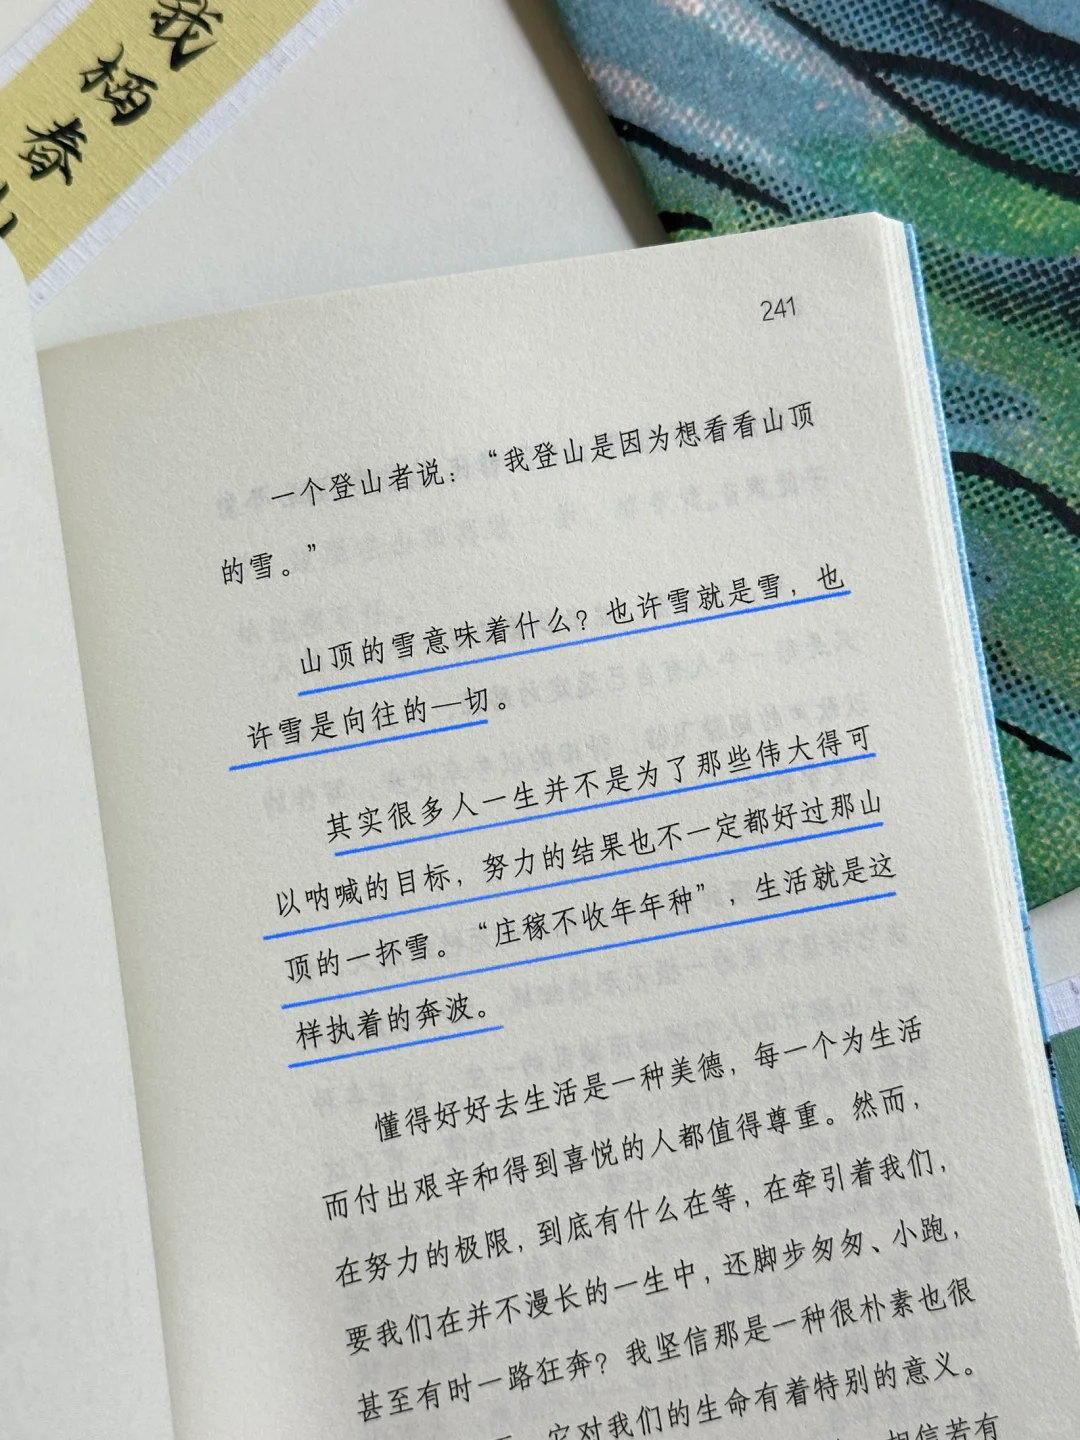 我栖春山
241
一个登山者说：“我登山是因为想看看山顶
的雪。”
山顶的雪意味着什么？也许雪就是雪，也
许雪是向往的一切。
其实很多人一生并不是为了那些伟大得可
以呐喊的目标，努力的结果也不一定都好过那山
顶的一抔雪。“庄稼不收年年种”，生活就是这
样执着的奔波。
懂得好好去生活是一种美德，每一个为生活
而付出艰辛和得到喜悦的人都值得尊重。然而，
在努力的极限，到底有什么在等，在牵引着我们，
要我们在并不漫长的一生中，还脚步匆匆、小跑，
甚至有时一路狂奔？我坚信那是一种很朴素也很
它对我们的生命有着特别的意义。
相信若有